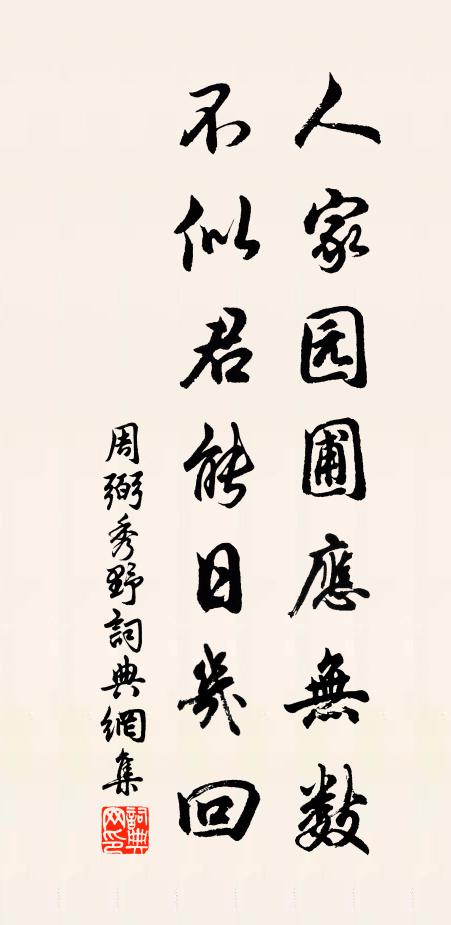 人家园圃應無數
不似君能日幾回
周弼秀野詞典網集
詞典网印